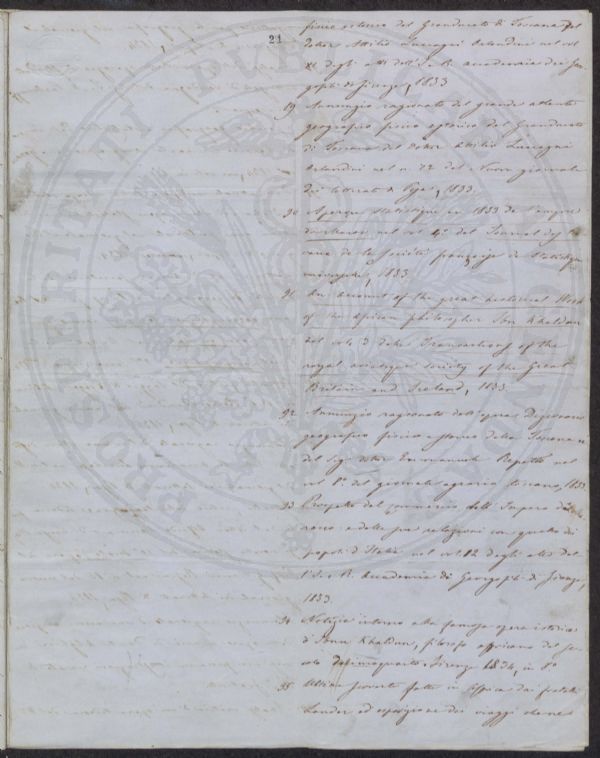 21
fisico storico del Granducato di Toscana del
Dottor Attilio Zuccagni Orlandini nel vol
XI degli atti dell'I. e R. Accademia dei Geo
gofili di Firenze, 1833
89 Annunzio ragionato del grande atlante
geografico fisico e storico del Granducato
di Toscana del Dottor Attilio Zuccagni
Orlandini nel n. 72 del Nuovo giornale
dei letterati di Pisa, 1833.
90 Aperçu statistique en 1833 de l'empire
nel vol. 4° del Journal des tra
vaux de la Société française de Statistique
universelle, 1833
91 An account of the great historical Work
of the African philosopher Ibn Khaldun
nel vol. 3 delle Transactions of the
royal asiatique society of the Great
Britain and Ireland, 1833
92 Annunzio ragionato dell'opera Dizionario
geografico fisico e storico della Toscana
del Sig. Dottor Emmanuele Repetti nel
vol 8° del giornale agrario toscano, 1833.
93 Prospetto del commercio dell'Impero
e delle sue relazioni con quello di
popoli d'Italia nel vol. 12 degli atti del
l'I. e R. Accademia di Georgofili di Firenze,
1833.
94 Notizia intorno alla famosa opera istorica
d'Ibnu Khaldun, filosofo affricano del se
colo decimoquarto. Firenze 1834, in 8°
95 Ultime scoverte fatte in Affrica dai fratelli
Lander ed esposizione dei viaggi che nel
PROSPERITATI PUBLICAE